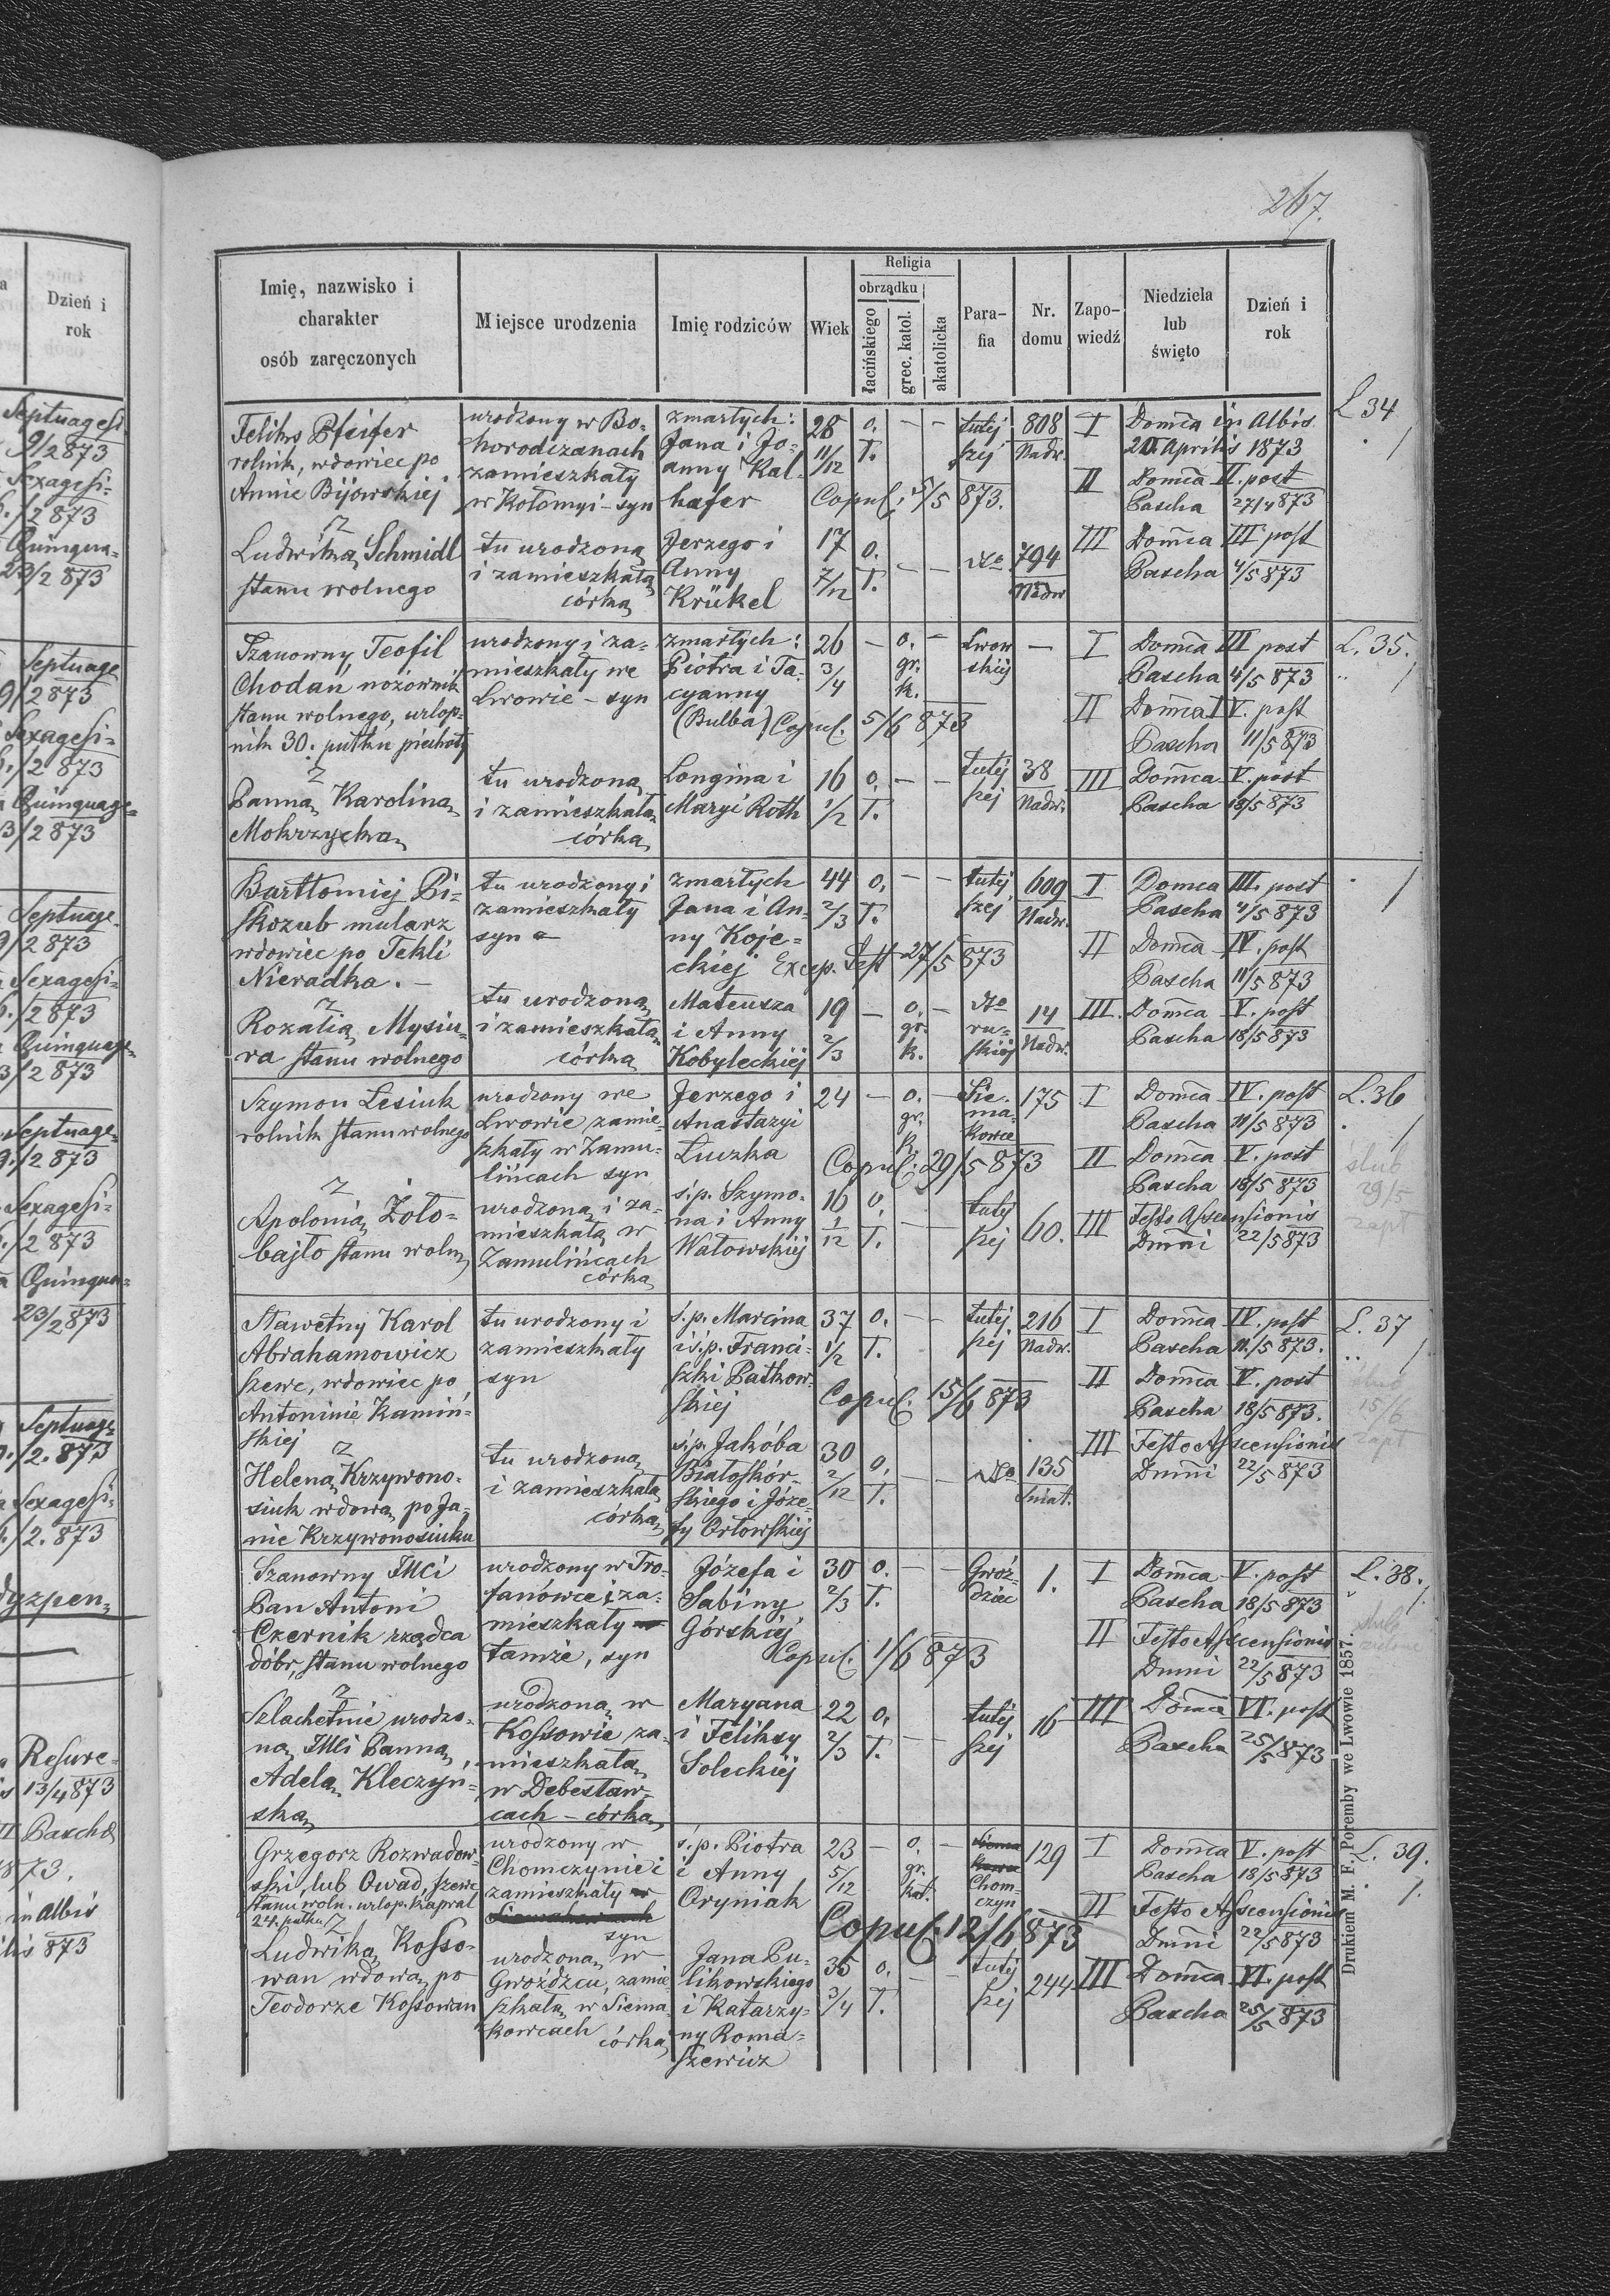 267.
Imię, nazwisko i
charakter
osób zaręczonych
Miejsce urodzenia
Imię rodziców
Wiek
Religia
obrządku
łacińskiego
grec. katol.
akatolicka
Para-
fia
Nr.
domu
Zapo-
wiedź
Niedziela
lub
święto
Dzień i
rok
Feliks Pfeifer
rolnik, wdowiec po
Annie Bijowskiej
urodzony w Bo-
horodczanach
zamieszkały
w Kołomyi - syn
zmarłych:
Jana i Jo-
anny Kal-
hafer
28
11/12
o.
ł.
— —
tutej
szej
808
Nadw.
Copul: 5/5 873.
I Domca in Albis
20. Aprilis 1873
II Domca II. post
Pascha 27/4 873
L 34
z
Ludwiką Schmidl
stanu wolnego
tu urodzoną
i zamieszkałą
córką
Jerzego i
Anny
Krükel
17
7/12
o.
ł.
— —
794
Nadw
III Domca III post
Pascha 4/5 873
Szanowny Teofil
Chodań nożownik
stanu wolnego, urlop-
nik 30. pułku piechoty
urodzony i za-
mieszkały we
Lwowie - syn
zmarłych:
Piotra i Ta-
cyanny
(Bulba) Copul. 5/6 873
26
3/4
— o. —
gr.
k.
Lwow
skiej
—
I Domca III post
Pascha 4/5 873
II Domca IV. post
Pascha 11/5 873
L. 35.
z
Panną Karoliną
Mokrzycką
tu urodzoną
i zamieszkałą
córką
Longina i
Maryi Roth
16
1/2
o. — —
ł.
tutej
szej
38
Nadw.
III Domca V. post
Pascha 18/5 873
Bartłomiej Pi-
skozub mularz
wdowiec po Tekli
Nieradka. —
tu urodzony i
zamieszkały
syn
zmarłych
Jana i An-
ny Koje-
ckiej
44
2/3
o. — —
ł.
tutej
szej
609
Nadw.
27/5 873
I Domca III. post
Pascha 4/5 873
II Domca IV. post
Pascha 11/5 873
z
Rozalią Mysiu-
ra stanu wolnego
tu urodzoną
i zamieszkałą
córką
Mateusza
i Anny
Kobyleckiej
19
2/3
— o. —
gr.
k.
ru-
skiej
14
Nadw.
III. Domca V. post
Pascha 18/5 873
Szymon Lesiuk
rolnik stanu wolnego
urodzony we
Lwowie zamie-
szkały w Zamu-
lińcach syn
Jerzego i
Anastazyi
Łuczka
24
— o. —
gr.
k.
Sie-
ma-
kowce
175
Copul: 29/5 873
I Domca IV. post
Pascha 11/5 873
II Domca V. post
Pascha 18/5 873
L. 36
ślub
29/5
zapł
z
Apolonią Żoło-
bajło stanu woln
urodzoną i za-
mieszkałą w
Zamulińcach
córką
ś.p. Szymo-
na i Anny
Watowskiej
16
1/12
o. — —
ł.
tutej
szej
60.
III Festo Ascensionis
Dmni 22/5 873
Sławetny Karol
Abrahamowicz
szewc, wdowiec po
Antoninie Kamiń-
skiej
tu urodzony i
zamieszkały
syn
ś.p. Marcina
i ś.p. Franci-
szki Patkow-
skiej
37
1/2
o. — —
ł.
tutej
szej
216
Nadw.
Copul. 15/6 873
I Domca IV. post
Pascha 11/5 873.
II Domca V. post
Pascha 18/5 873.
L. 37
ślub
15/6
zapł
z
Heleną Krzywono-
siuk wdową po Ja-
nie Krzywonosiuku
tu urodzoną
i zamieszkałą
córką
ś.p. Jakóba
Białoskór-
skiego i Józe-
fy Orłowskiej
30
2/12
o. — —
ł.
135
Śniat.
III Festo Ascensionis
Dmni 22/5 873
Szanowny IMci
Pan Antoni
Czernik rządca
dóbr, stanu wolnego
urodzony w Tro-
fanówce i za-
mieszkały
tamże, syn
Józefa i
Sabiny
Górskiej
30
2/3
o. — —
ł.
Gwoź-
dziec
1.
Copul. 1/6 873
I Domca V. post
Pascha 18/5 873
II Festo Ascensionis
Dmni 22/5 873
L. 38.
z
Szlachetnie urodzo-
ną IMci Panną
Adelą Kleczyń-
ską
urodzoną w
Kossowie za-
mieszkałą
w Debesław-
cach - córką
Maryana
i Feliksy
Soleckiej
22
2/3
o. — —
ł.
tutej
szej
16
III Domca VI. post
Pascha 25/5 873
Grzegorz Rozwadow-
ski, lub Owad, szewc
stanu woln. urlop. Kapral
24. pułku
urodzony w
Chomczynie i
zamieszkały w
syn
ś.p. Piotra
i Anny
Oryniak
23
5/12
— o. —
gr.
kat.
Chom-
czyn
129
Copul. 12/6 873
I Domca V. post
Pascha 18/5 873
II Festo Ascensionis
Dmni 22/5 873
L. 39.
z
Ludwiką Kosso-
wan wdową po
Teodorze Kossowan
urodzoną w
Gwoźdzcu, zamie-
szkałą w Siema-
kowcach
córką
Jana Pu-
likowskiego
i Katarzy-
ny Roma-
szewicz
35
3/4
o. — —
ł.
tutej
szej
244
III Domca VI. post
Pascha 25/5 873
Drukiem M. F. Poremby we Lwowie 1857.
Dzień i
rok
Septuagesi
9/2 873
Sexagesi-
/2 873
Quinqua-
23/2 873
Septuage
9/2 873
Sexagesi-
/2 873
Quinquage-
3/2 873
Septuage-
9/2 873
Sexagesi-
/2 873
Quinquage-
3/2 873
Septuage-
9./2 873
Sexagesi-
/2 873
Quinqua-
23/2 873
Septuage-
./2. 873
Sexagesi-
/2. 873
dyzpen
Resurre-
13/4 873
Pascha
1873.
in Albis
873